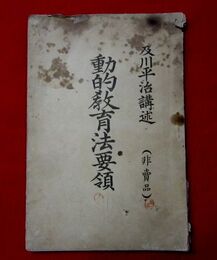 及川平治講述
(非賣品)
動的教育法要領